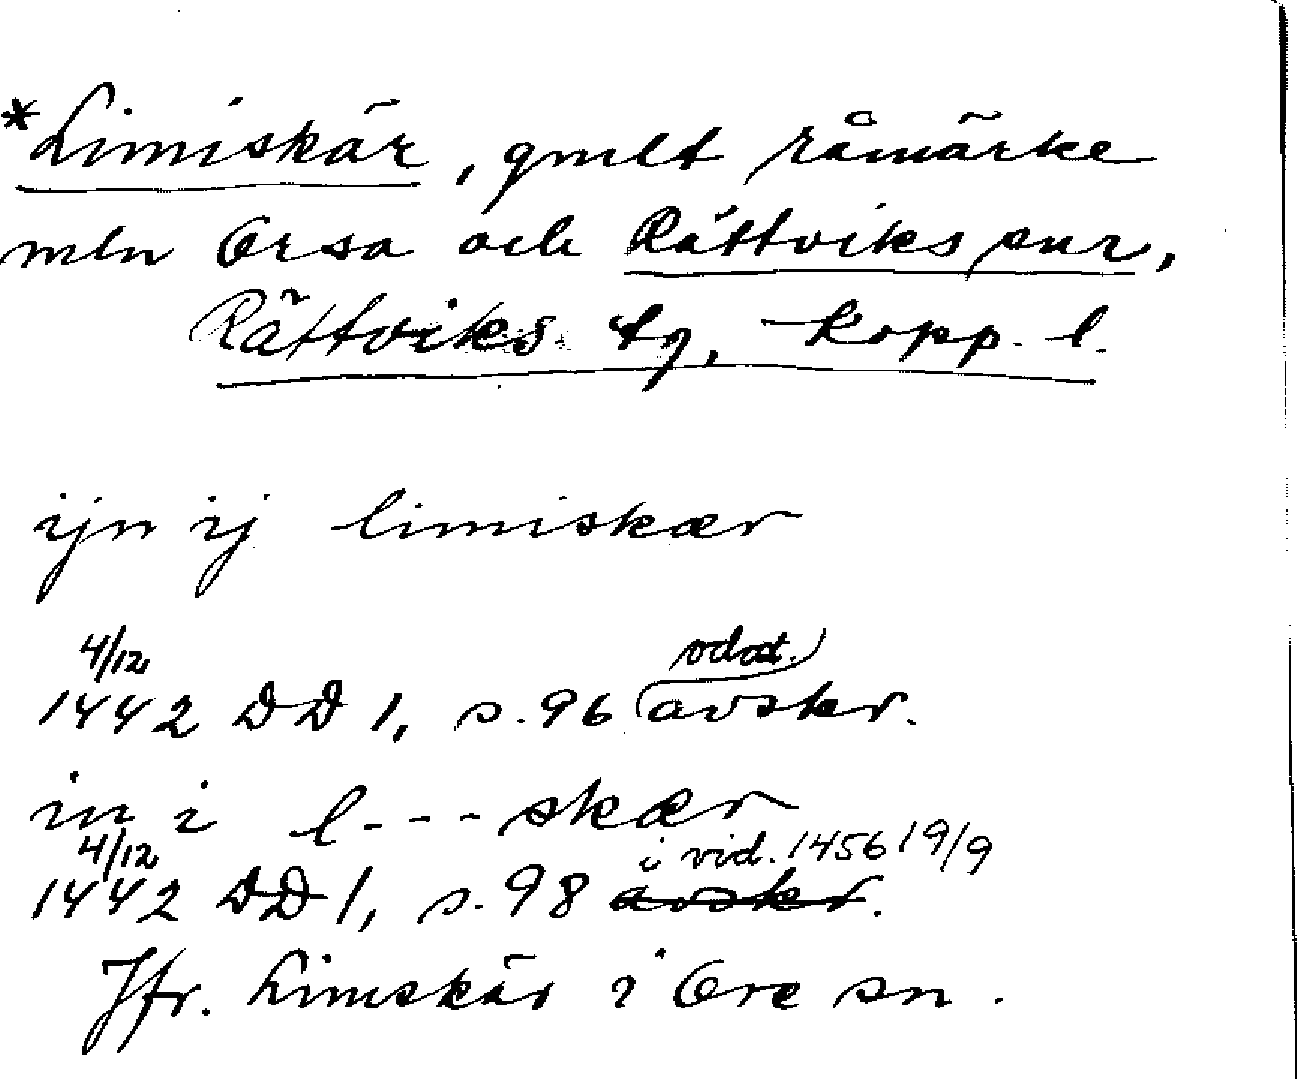 *Limiskär, gmlt råmärke
mln Orsa och Rättviks snr,
Rättviks tg, Kopp. l.
ijn ij limiskær
4/12 odat.
1442 DD 1, s. 96 (avskr.
in i l---skær
4/12 i vid. 1456 19/9
1442 DD 1, s. 98 avskr.
Jfr. Limskär i Ore sn.